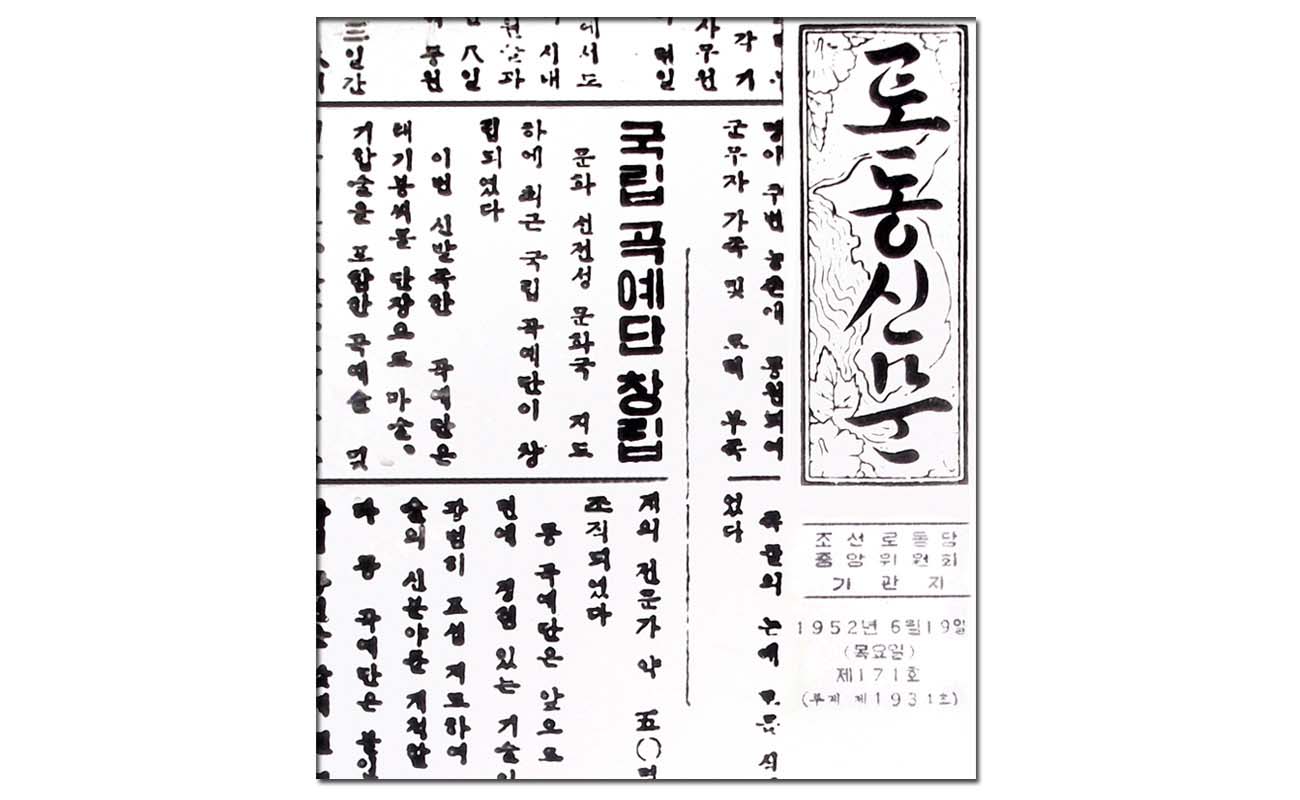 로동신문
조선로동당
중앙위원회
기관지
1952년 6월19일
(목요일)
제171호
(루계 제1931호)
각 기
사무원
매일
에서도
시내
八일
동원
三일간
명이 주변 농촌에 동원되여
군무자 가족 및 로력 부족
국립 곡예단 창립
문화 선전성 문화국 지도
하에 최근 국립 곡예단이 창
립되였다
이번 신발족한 곡예단은
태기봉씨를 단장으로 마술,
기합술을 포함한 곡예술 및
족들의 논에 모를 식
었다
계의 전문가 약 五〇명
조직되었다
동 곡예단은 앞으로
있는 기술
광범히 포섭 지도하여
술의 신분야를 개척할
바 동 곡예단은 불일